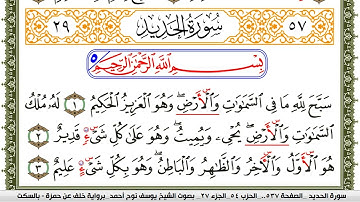 ٢٩ سُورَةُ الحَدِيدِ ٥٧
بِسْمِ اللَّهِ الرَّحْمَٰنِ الرَّحِيمِ
سَبَّحَ لِلَّهِ مَا فِي السَّمَٰوَٰتِ وَالْأَرْضِ وَهُوَ الْعَزِيزُ الْحَكِيمُ ١ لَهُۥ مُلْكُ
السَّمَٰوَٰتِ وَالْأَرْضِ يُحْيِۦ وَيُمِيتُ وَهُوَ عَلَىٰ كُلِّ شَيْءٍ قَدِيرٌ ٢
هُوَ الْأَوَّلُ وَالْآخِرُ وَالظَّٰهِرُ وَالْبَاطِنُ وَهُوَ بِكُلِّ شَيْءٍ عَلِيمٌ ٣
سورة الحديد _ الصفحة ٥٣٧ .. الحزب ٥٤ _ الجزء ٢٧ _ بصوت الشيخ يوسف نوح أحمد _ برواية خلف عن حمزة - بالسكت